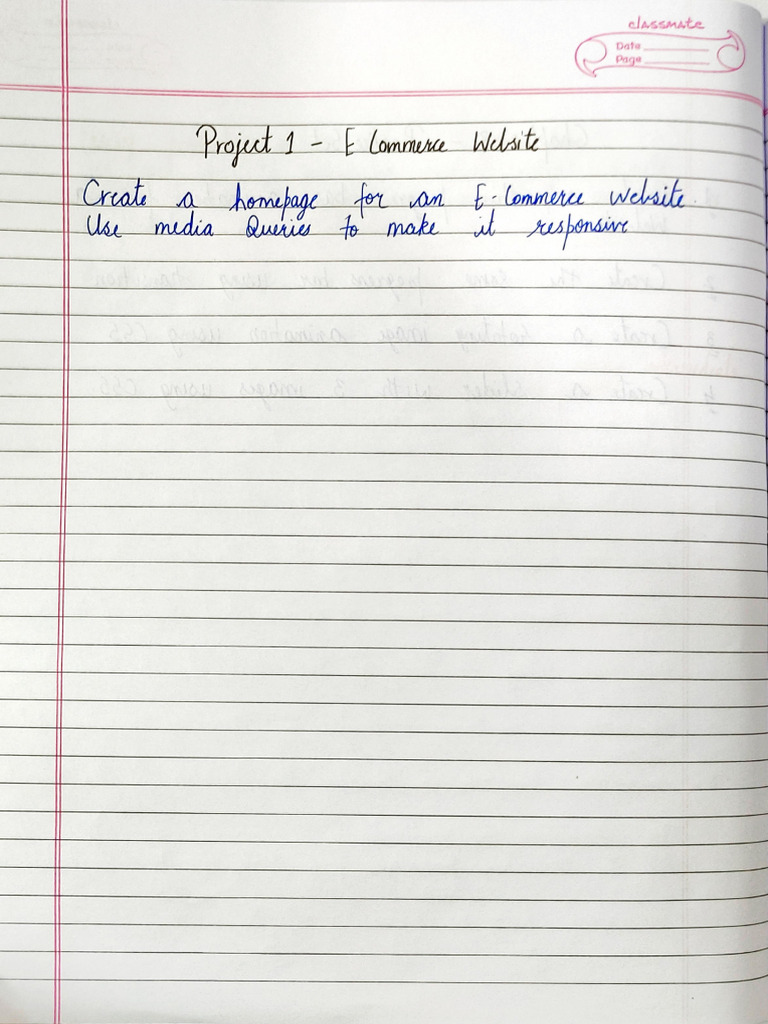 classmate
Date
Page
Project 1 - E Commerce Website
Create a homepage for an E-Commerce website.
Use media Queries to make it responsive